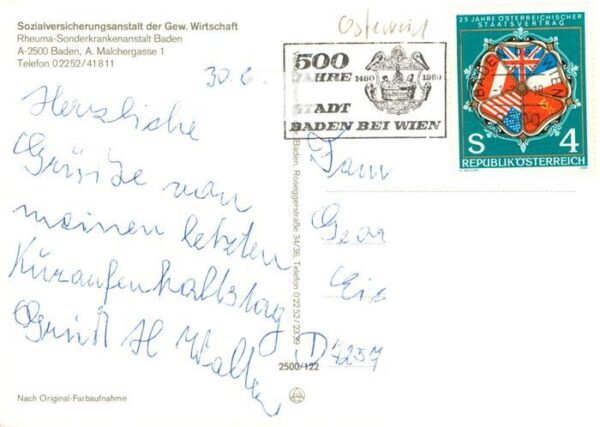 Sozialversicherungsanstalt der Gew. Wirtschaft
Rheuma-Sonderkrankenanstalt Baden
A-2500 Baden, A. Malchergasse 1
Telefon 02252/41811
30.6.
Herzliche
Grüße von
meinen letzten
Kuraufenthaltstag
Gruß H Walter
Nach Original-Farbaufnahme
Baden, Roseggerstraße 34/36, Telefon 02252/2339
2500/122
Österreich
500
JAHRE 1480 1980
STADT
BADEN BEI WIEN
25 JAHRE ÖSTERREICHISCHER
STAATSVERTRAG
S 4
REPUBLIK ÖSTERREICH
Fam
Georg
D 7257